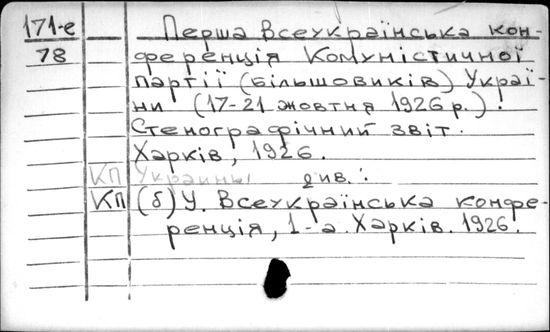 171-е Перша Всеукраїнська кон-
78 ференція Комуністичної
партії (більшовиків) Украї-
ни (17-21 жовтня 1926 р.).
Стенографічний звіт.
Харків, 1926.
КП Украины див.:
КП (б)У. Всеукраїнська конфе-
ренція, 1-а. Харків. 1926.